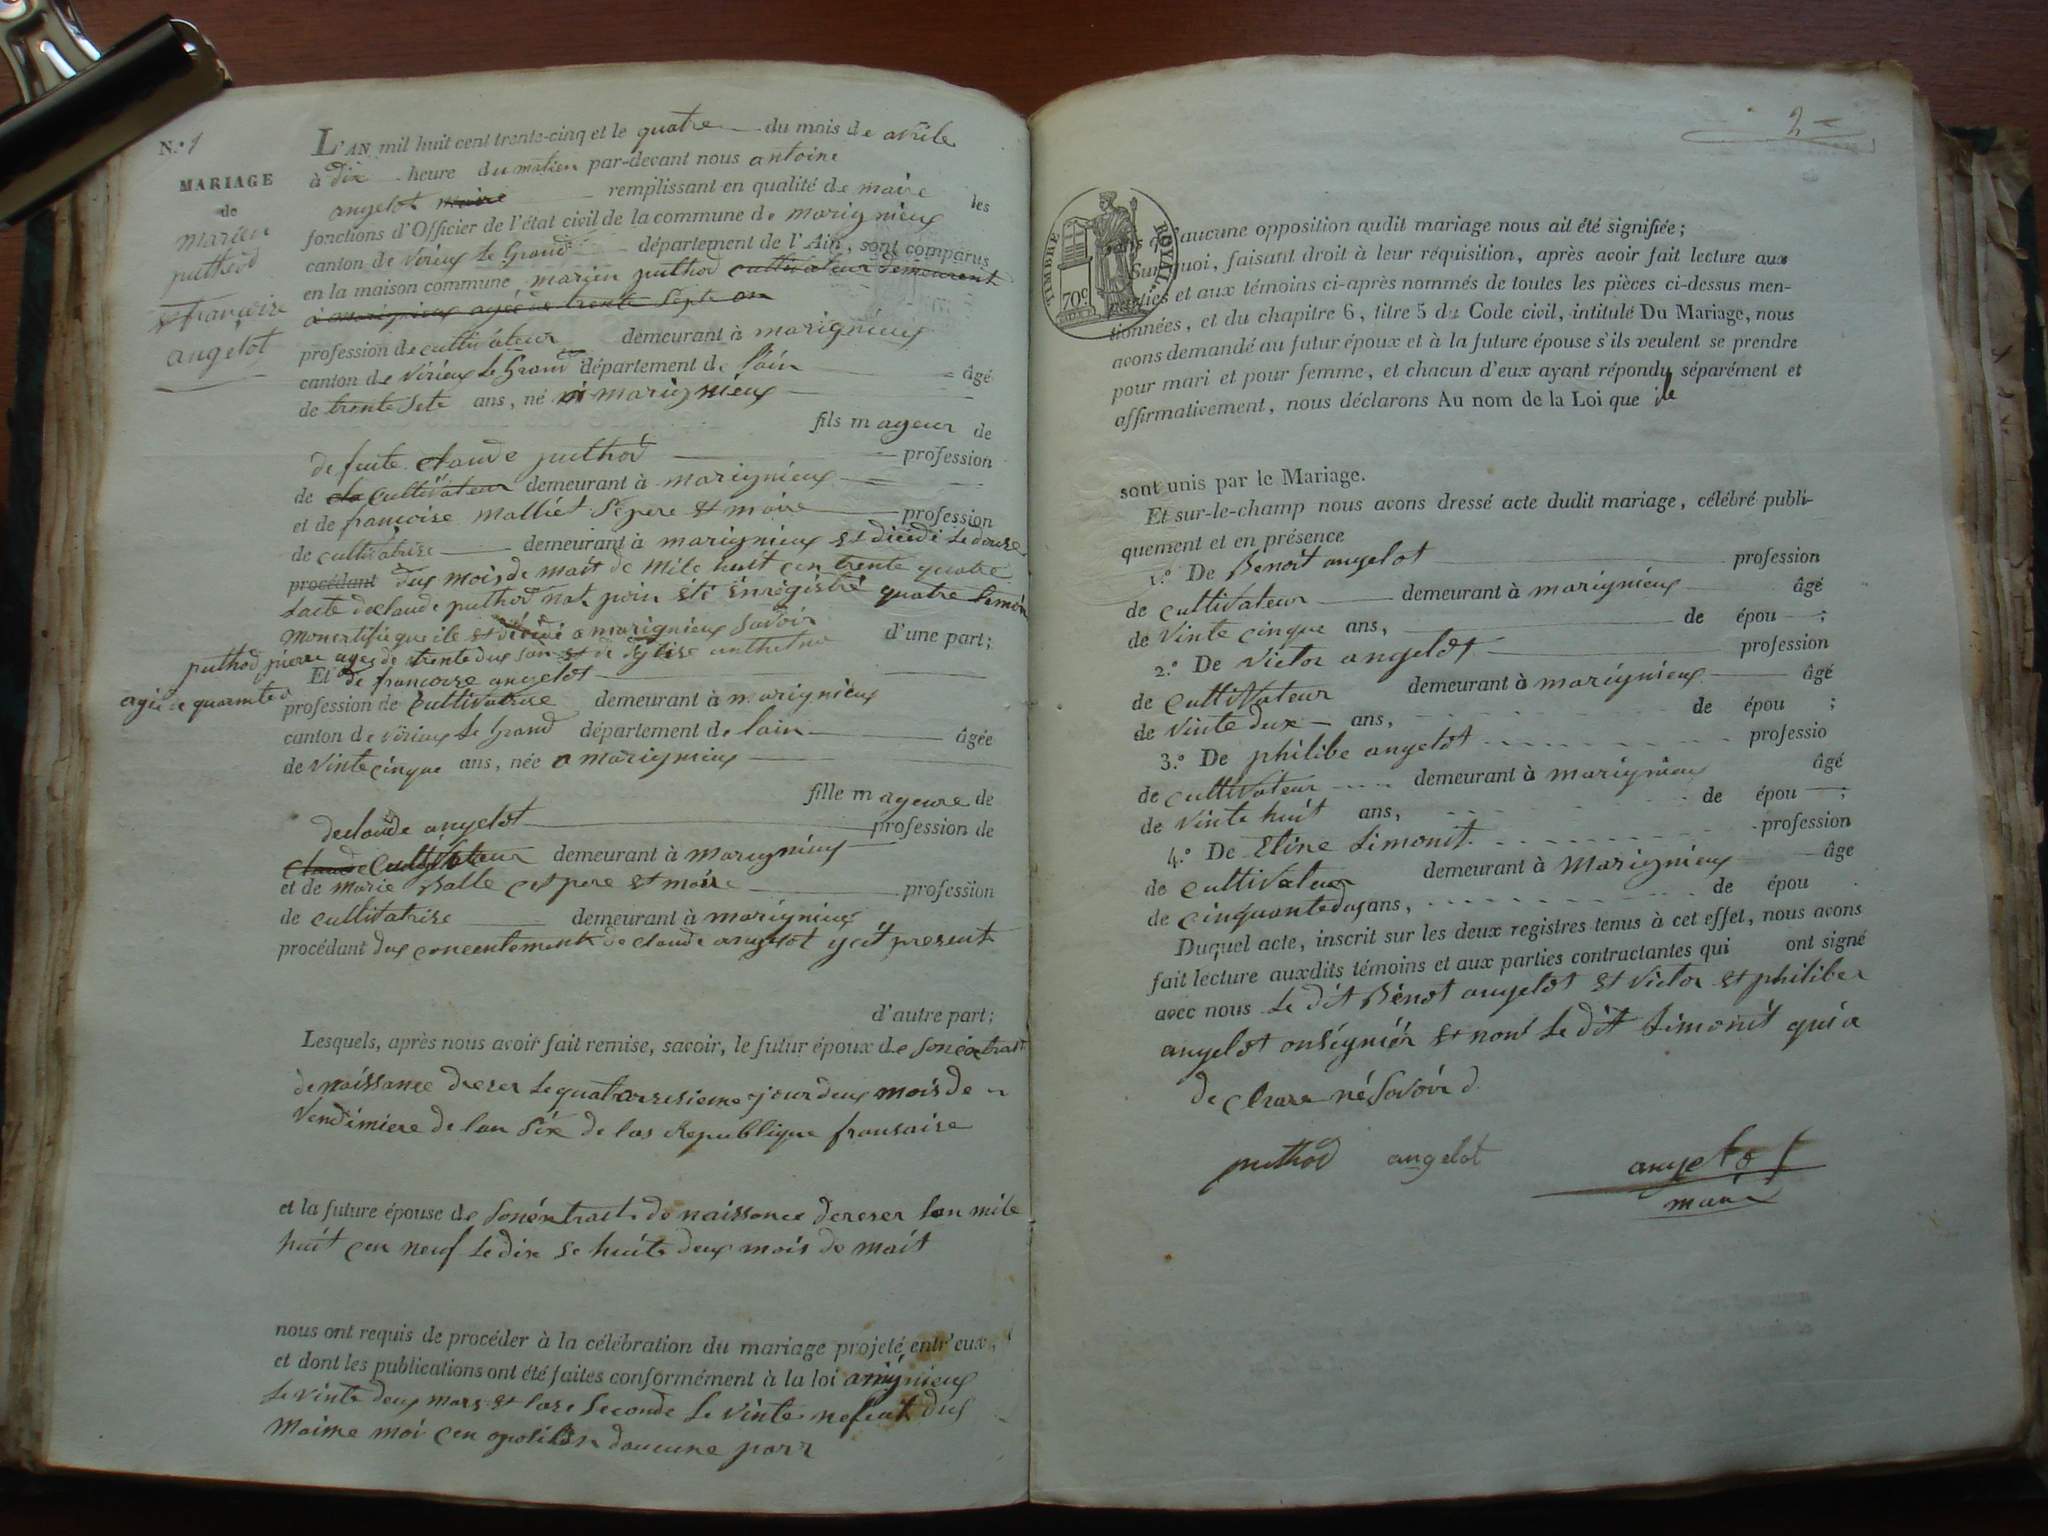 N.º 1
MARIAGE
de
marieu
puthod
et francoise
angelot
L'AN mil huit cent trente-cinq et le quatre du mois de avrile
à dix heure du matien par-devant nous antoine
angelot maire remplissant en qualité de maire les
fonctions d'Officier de l'état civil de la commune de marignieux
canton de virieux le Grand département de l'Ain, sont comparus
en la maison commune marieu puthod cultivateur demeurent
a marignieux agé de trente sept an
profession de cultivateur demeurant à marignieux
canton de virieux le Grand département de lain âgé
de trente sete ans, né a marignieux
fils mageur de
de feute claude puthod profession
de cla cultivateur demeurant à marignieux
et de francoise malliet sepere et maire profession
de cultivatrise demeurant à marignieux et décédé le douse
procédant dus mois de mait de mile huit cen trente quatre
lacte de claude puthod nat poin été énregistré quatre témoin
mon certifié que ile et décédé a marignieux savoir
d'une part;
puthod pierre agés de trente dus son et de déglise anthelme
agée de quarnte
Et de francoise angelot
profession de cultivatrise demeurant à marignieux
canton de virieux le Grand département de lain âgée
de vinte cinque ans, née a marignieux
fille mageure de
declaude angelot profession de
claude cultivateur demeurant à marignieux
et de marie Balle cet pere et maire profession
de cultivatrise demeurant à marignieux
procédant dus concentement de claude angelot y cit present
d'autre part;
Lesquels, après nous avoir fait remise, savoir, le futur époux de sonéxtrait
de naissance dreser le quatorsieme jour deux mois de
vendimiere de lan Six de las Republique fransaise
et la future épouse de sonéxtrait de naissance dereser lan mile
huit cen neuf le dix se huite deux mois de mait
nous ont requis de procéder à la célébration du mariage projeté entr'eux,
et dont les publications ont été faites conformément à la loi
le vinte deux mars et lase seconde le vinte nefieut dus
maime moi cen oposition daucune parr
2
TIMBRE ROYAL
70c
sans qu'aucune opposition audit mariage nous ait été signifiée;
Sur quoi, faisant droit à leur réquisition, après avoir fait lecture aux
parties et aux témoins ci-après nommés de toutes les pièces ci-dessus men-
tionnées, et du chapitre 6, titre 5 du Code civil, intitulé Du Mariage, nous
avons demandé au futur époux et à la future épouse s'ils veulent se prendre
pour mari et pour femme, et chacun d'eux ayant répondu séparément et
affirmativement, nous déclarons Au nom de la Loi que ile
sont unis par le Mariage.
Et sur-le-champ nous avons dressé acte dudit mariage, célébré publi-
quement et en présence
1.º De Benoit angelot profession
de cultivateur demeurant à marignieux âgé
de vinte cinque ans, de épou ;
2.º De victor angelot profession
de cultivateur demeurant à marignieux âgé
de vinte dux ans, de épou ;
3.º De philibe angelot professio
de cultivateur demeurant à marignieux âgé
de vinte huit ans, de épou ;
4.º De Etine Simonit profession
de cultivateur demeurant à Marignieux âge
de cinquante dus ans, de épou
Duquel acte, inscrit sur les deux registres tenus à cet effet, nous avons
fait lecture auxdits témoins et aux parties contractantes qui ont signé
avec nous le dit Bénot angelot et victor et philiber
angelot onségniér et non le dit Simonit qui a
de clrare né savoir d
puthod angelot angelot
maire